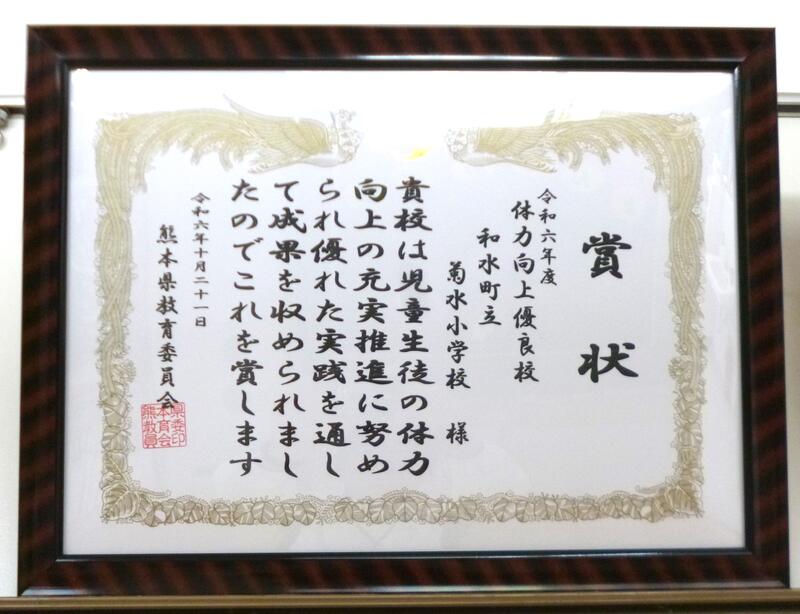 賞状
令和六年度
体力向上優良校
和水町立
菊水小学校 様
貴校は児童生徒の体力
向上の充実推進に努め
られ優れた実践を通し
て成果を収められまし
たのでこれを賞します
令和六年十月二十一日
熊本県教育委員会
熊本県教育委員会印